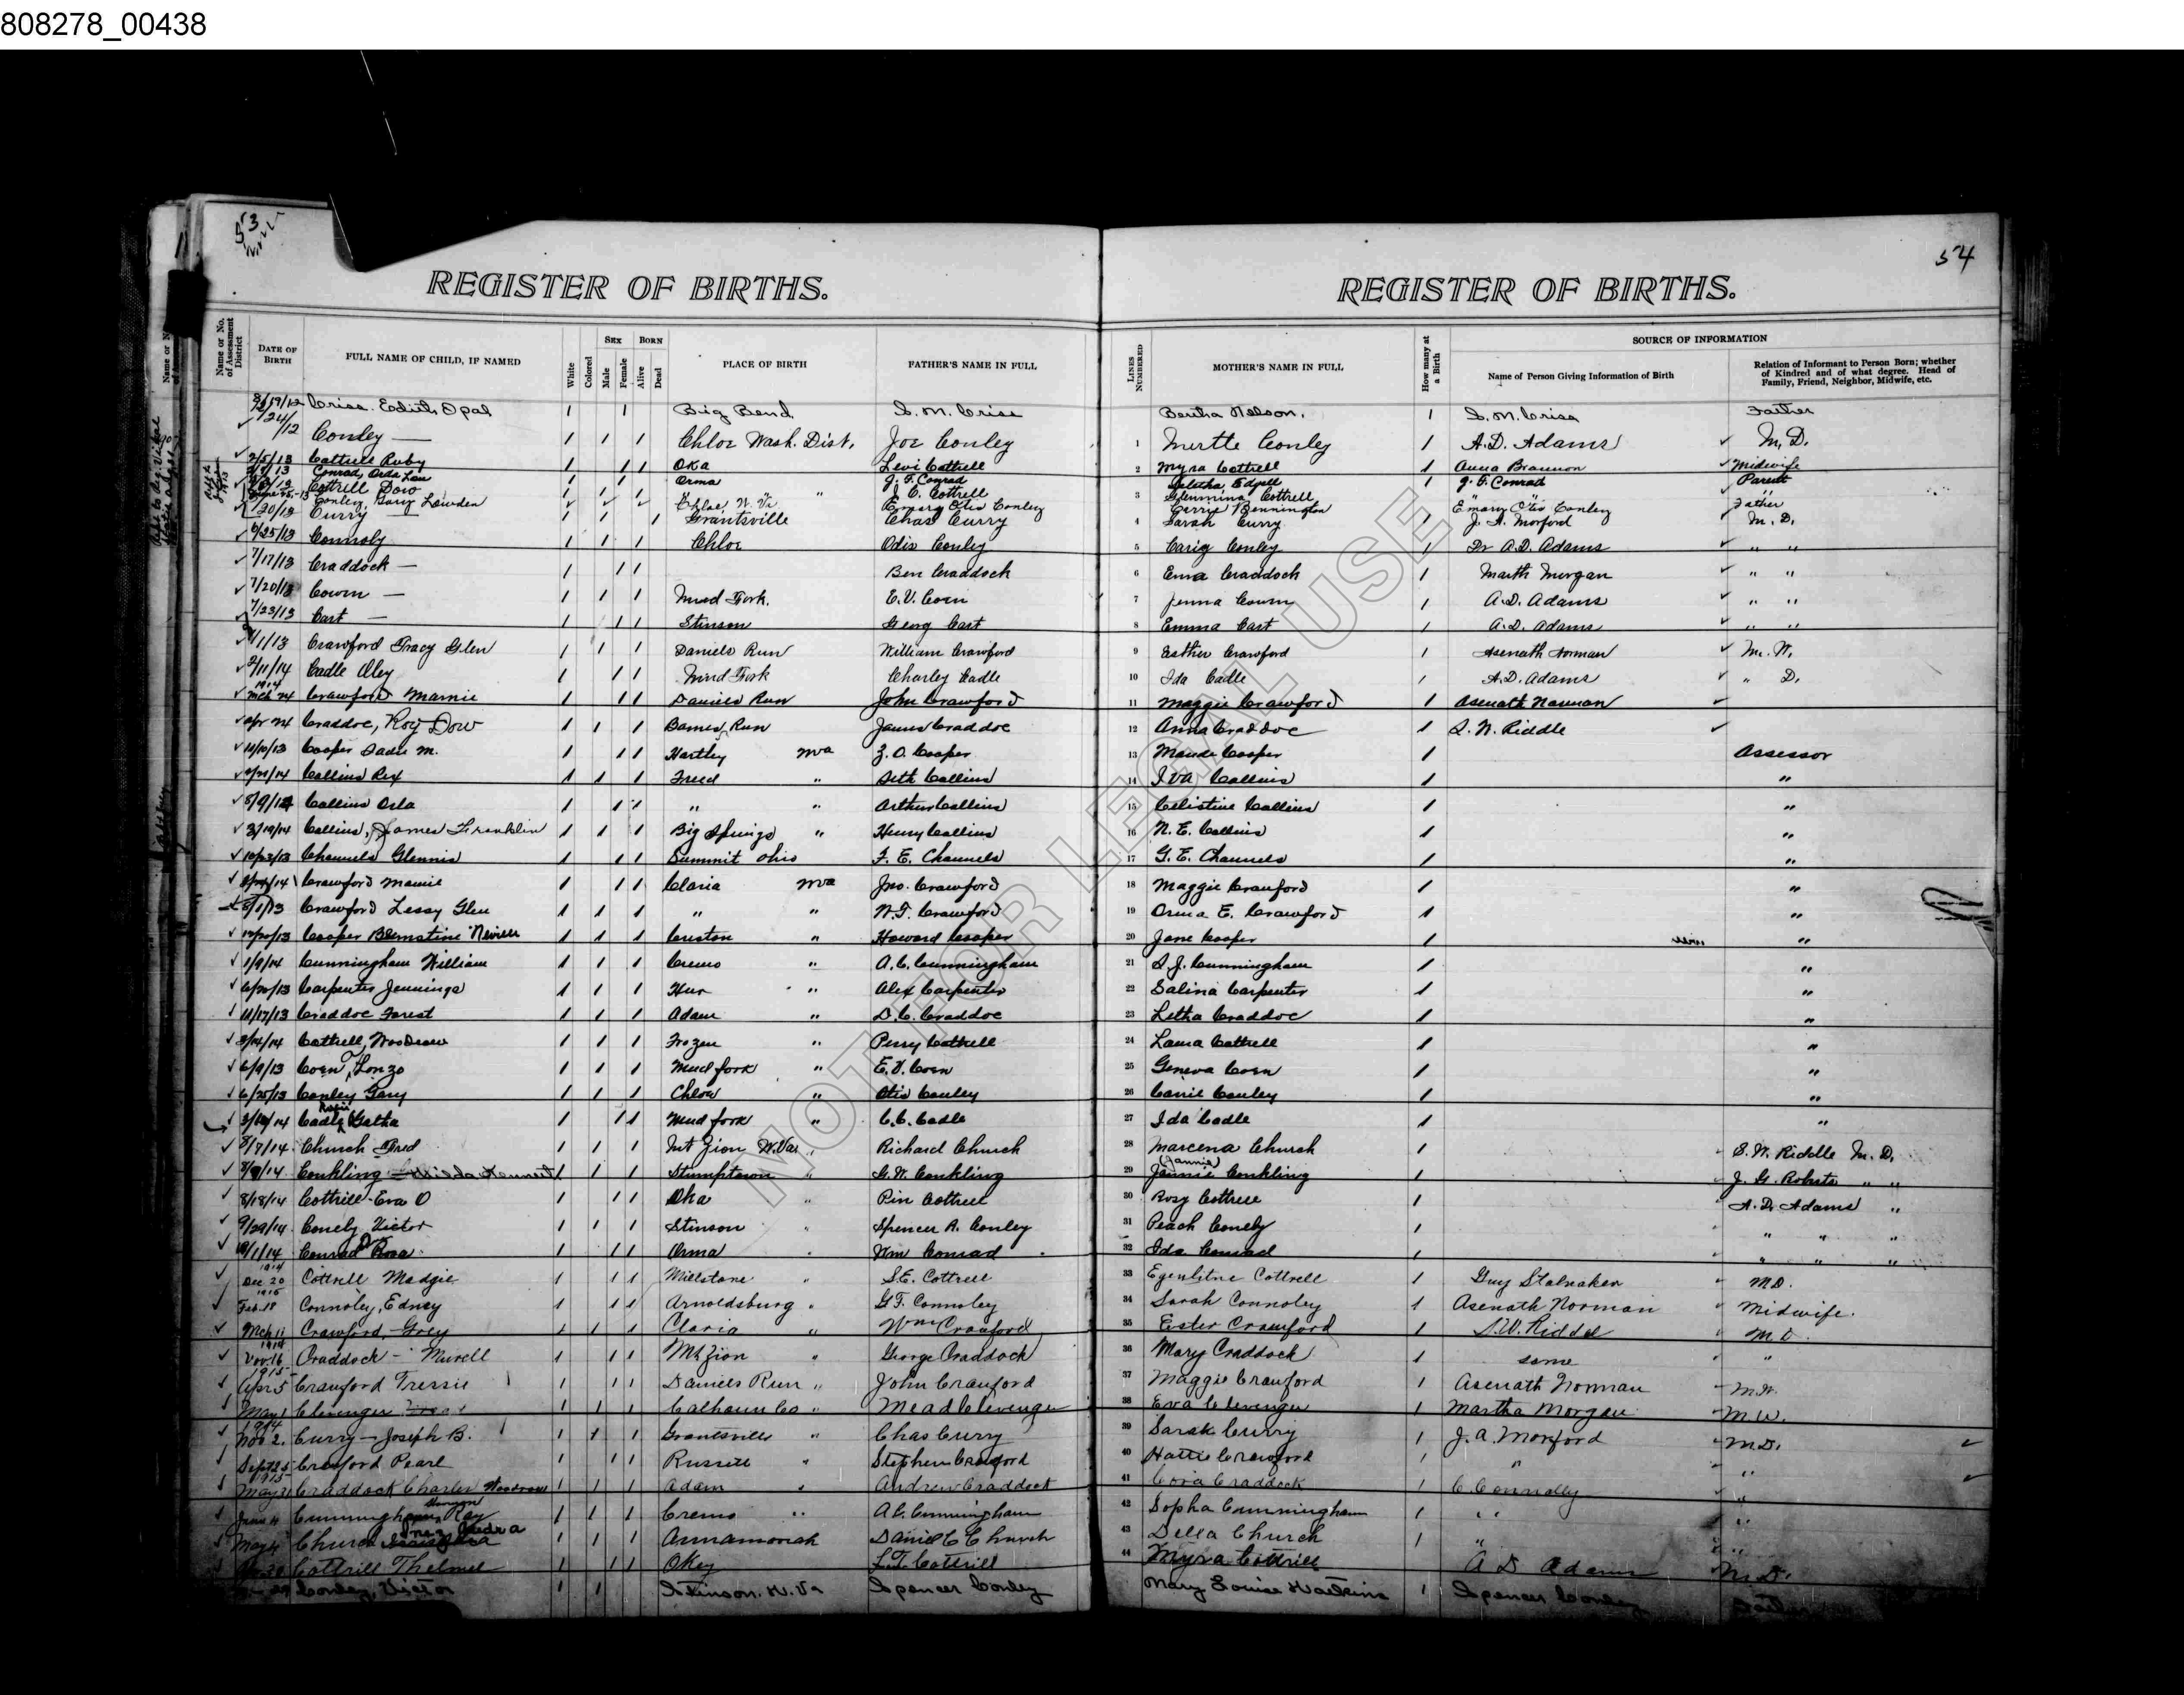 808278_00438
53
54
REGISTER OF BIRTHS.
REGISTER OF BIRTHS.
Name or No. of Assessment District
DATE OF BIRTH
FULL NAME OF CHILD, IF NAMED
White
Colored
SEX
Male
Female
BORN
Alive
Dead
PLACE OF BIRTH
FATHER'S NAME IN FULL
LINES NUMBERED
MOTHER'S NAME IN FULL
How many at a Birth
SOURCE OF INFORMATION
Name of Person Giving Information of Birth
Relation of Informant to Person Born; whether of Kindred and of what degree. Head of Family, Friend, Neighbor, Midwife, etc.
Criss. Edith Opal 1 1 Big Bend S. M. Criss Bertha Nelson. 1 S. M. Criss Father
/24/12 Conley — 1 1 1 Chloe Wash. Dist. Joe Conley 1 Mertle Conley 1 A.D. Adams M. D.
2/5/13 Cottrell Ruby 1 1 1 Oka Levi Cottrell 2 Myra Cottrell 1 Anna Brannon Midwife
Conrad, Orda Lou 1 1 Orma J. F. Conrad Edgell 1 J. F. Conrad Parent
Cottrell Dow 1 1 1 " J. C. Cottrell 3 Cottrell
Conley Gary Lowden Chloe, W. Va Emory Otis Conley Carrie Bennington Emory Otis Conley Father
/20/13 Curry — 1 1 1 Grantsville Chas Curry 4 Sarah Curry 1 J. A. Morford M. D.
6/25/13 Connoly 1 1 1 Chloe Odis Conley 5 Carig Conley 1 Dr A.D. Adams " "
7/17/13 Craddock — 1 1 1 Ben Craddock 6 Emma Craddock 1 Marth Morgan " "
7/20/13 Cowen — 1 1 1 Mud Fork. E.V. Coen 7 Jenna Cowen 1 A.D. Adams " "
7/23/13 Cart — 1 1 1 Stinson Georg Cart 8 Emma Cart 1 A.D. Adams " "
/1/13 Crawford Tracy Glen 1 1 1 Daniels Run William Crawford 9 Esther Crawford 1 Asenath Norman M. W.
2/11/14 Cadle Oley 1 1 1 Mud Fork Charley Cadle 10 Ida Cadle 1 A.D. Adams " D.
1914
Mch 24 Crawford Mamie 1 1 1 Daniels Run John Crawford 11 Maggie Crawford 1 Asenath Norman
Apr 24 Craddoc, Roy Dow 1 1 1 Barnes Run James Craddoc 12 Anna Craddoc 1 S. W. Riddle
11/10/13 Cooper Sadie M. 1 1 1 Hartley WVa Z. O. Cooper 13 Maude Cooper 1 Assessor
2/21/14 Collins Rex 1 1 1 Freed " Seth Collins 14 Iva Collins 1 "
8/9/13 Collins Orla 1 1 1 " " Arthur Collins 15 Celistine Collins 1 "
3/19/14 Collins, James Franklin 1 1 1 Big Springs " Henry Collins 16 N. E. Collins 1 "
10/23/13 Channels Glennis 1 1 1 Summit Ohio F. E. Channels 17 G. E. Channels 1 "
/14 Crawford Mamie 1 1 1 Claria WVa Jno. Crawford 18 Maggie Crawford 1 "
8/1/13 Crawford Lessy Glen 1 1 1 " " W. F. Crawford 19 Orma E. Crawford 1 "
12/20/13 Cooper Bernstine 1 1 1 Creston " Howard Cooper 20 Jane Cooper 1 "
1/9/14 Cunningham William 1 1 1 Cremo " A. C. Cunningham 21 S. J. Cunningham 1 "
6/20/13 Carpenter Jennings 1 1 1 Hur " Alex Carpenter 22 Salina Carpenter 1 "
11/17/13 Craddoc Forest 1 1 1 Adam " D. C. Craddoc 23 Letha Craddoc 1 "
3/14/14 Cottrell, Woodrow 1 1 1 Frozen " Perry Cottrell 24 Laura Cottrell 1 "
6/9/13 Coen, Lonzo 1 1 1 Mud fork " E. V. Coen 25 Geneva Coen 1 "
6/25/13 Conley Gary 1 1 1 Chloe " Otis Conley 26 Carrie Conley 1 "
3/10/14 Cadle Gatha 1 1 1 Mud fork " C. C. Cadle 27 Ida Cadle 1 "
8/7/14 Church Fred 1 1 1 Mt Zion W. Va " Richard Church 28 Marcena Church 1 S. W. Riddle M. D.
(Jannie)
8/8/14 Conkling 1 1 1 Stumptown " G. W. Conkling 29 Jennie Conkling 1 J. G. Roberts " "
8/18/14 Cottrill Eva O 1 1 1 Oka " Pin Cottrell 30 Rosy Cottrell 1 A. D. Adams "
9/29/14 Conely Victor 1 1 1 Stinson " Spencer A. Conley 31 Peach Conely 1 " " "
10/1/14 Conrad Rosa 1 1 1 Orma " Wm Conrad 32 Ida Conrad 1 " " "
1914
Dec 20 Cottrell Madgie 1 1 1 Millstone " S.E. Cottrell 33 Cottrell 1 Guy Stalnaker MD.
1915
Feb. 18 Connoley, Edney 1 1 1 Arnoldsburg " G.F. Connoley 34 Sarah Connoley 1 Asenath Norman Midwife.
Mch 11 Crawford, Grey 1 1 1 Claria " Wm Crawford 35 Ester Crawford 1 S.W. Riddle M D.
1914
Nov. 16 Craddock — Murell 1 1 1 Mt Zion " George Craddock 36 Mary Craddock 1 same "
1915
Apr 5 Crawford Tressie 1 1 1 Daniels Run " John Crawford 37 Maggie Crawford 1 Asenath Norman M.W.
May 1 Clevenger 1 1 1 Calhoun Co " Mead Clevenger 38 Eva Clevenger 1 Martha Morgan M W.
1914
Nov 2. Curry — Joseph B. 1 1 1 Grantsville " Chas Curry 39 Sarah Curry 1 J. A. Morford M.D.
Sept 25 Crawford Pearl 1 1 1 Russell " Stephen Crawford 40 Hattie Crawford 1 " "
1915
May 31 Craddock Charles Woodrow 1 1 1 Adam " Andrew Craddock 41 Cora Craddock 1 C. Connolly "
June 4 Cunningham Ray 1 1 1 Cremo " A C. Cunningham 42 Sopha Cunningham 1 " "
May 4 Church 1 1 1 Annamoriah Daniel C Church 43 Della Church 1 " "
Cottrill Thelma 1 1 1 Okey L. T. Cottrill 44 Myra Cottrill A D Adams M. D.
Conley, Victor 1 1 Stinson. W. Va Spencer Conley Mary Louise Watkins 1 Spencer Conley Father
NOT FOR LEGAL USE